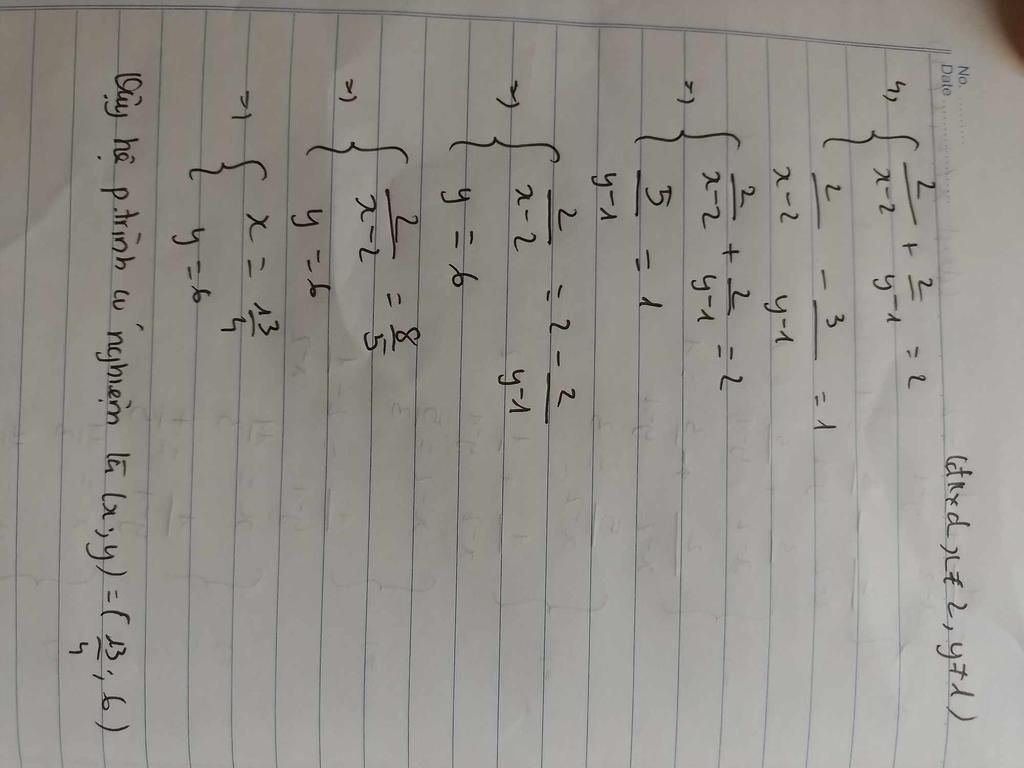 No.
Date
(đkxđ x≠2, y≠1)
4, { 2/(x-2) + 2/(y-1) = 2
2/(x-2) - 3/(y-1) = 1
=> { 2/(x-2) + 2/(y-1) = 2
5/(y-1) = 1
=> { 2/(x-2) = 2 - 2/(y-1)
y = 6
=> { 2/(x-2) = 8/5
y = 6
=> { x = 13/4
y = 6
Vậy hệ p.trình có nghiệm là (x;y) = (13/4; 6)